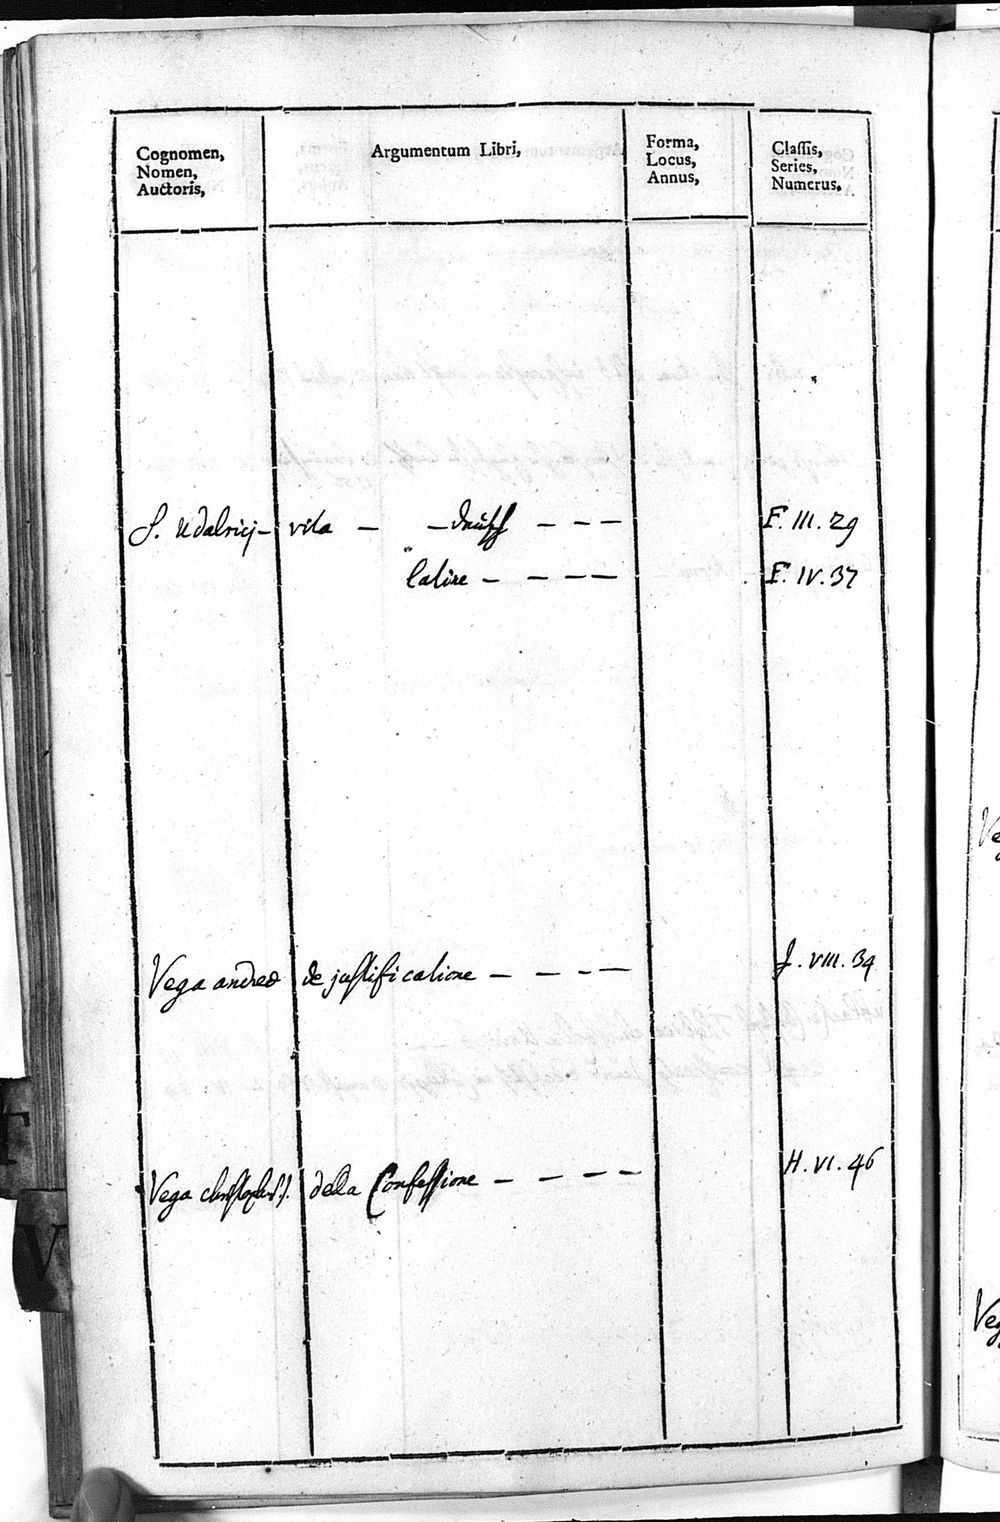 Cognomen,
Nomen,
Auctoris,
Argumentum Libri,
Forma,
Locus,
Annus,
Classis,
Series,
Numerus,
S. Udalricj – vita – – – – – F. III. 29
latine – – – – F. IV. 37
Vega andreæ de justificatione – – – – J. VIII. 34
Vega della Confessione – – – – H. VI. 46
F
V